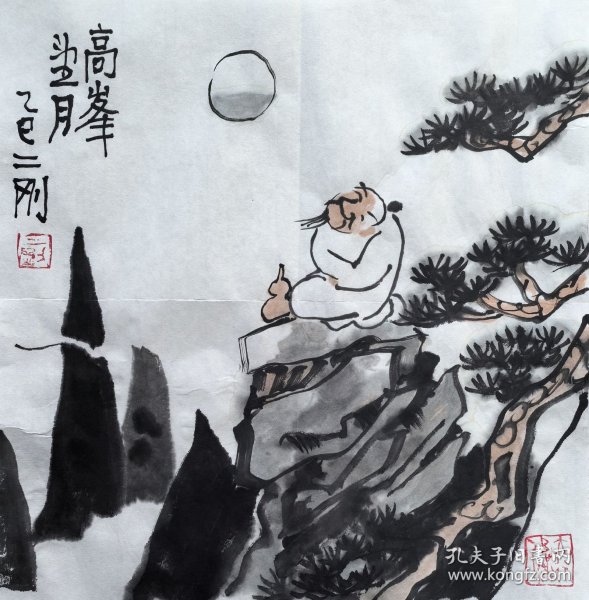 高峯
望月
乙巳二刚
二刚
孔夫子旧书网
www.kongfz.com